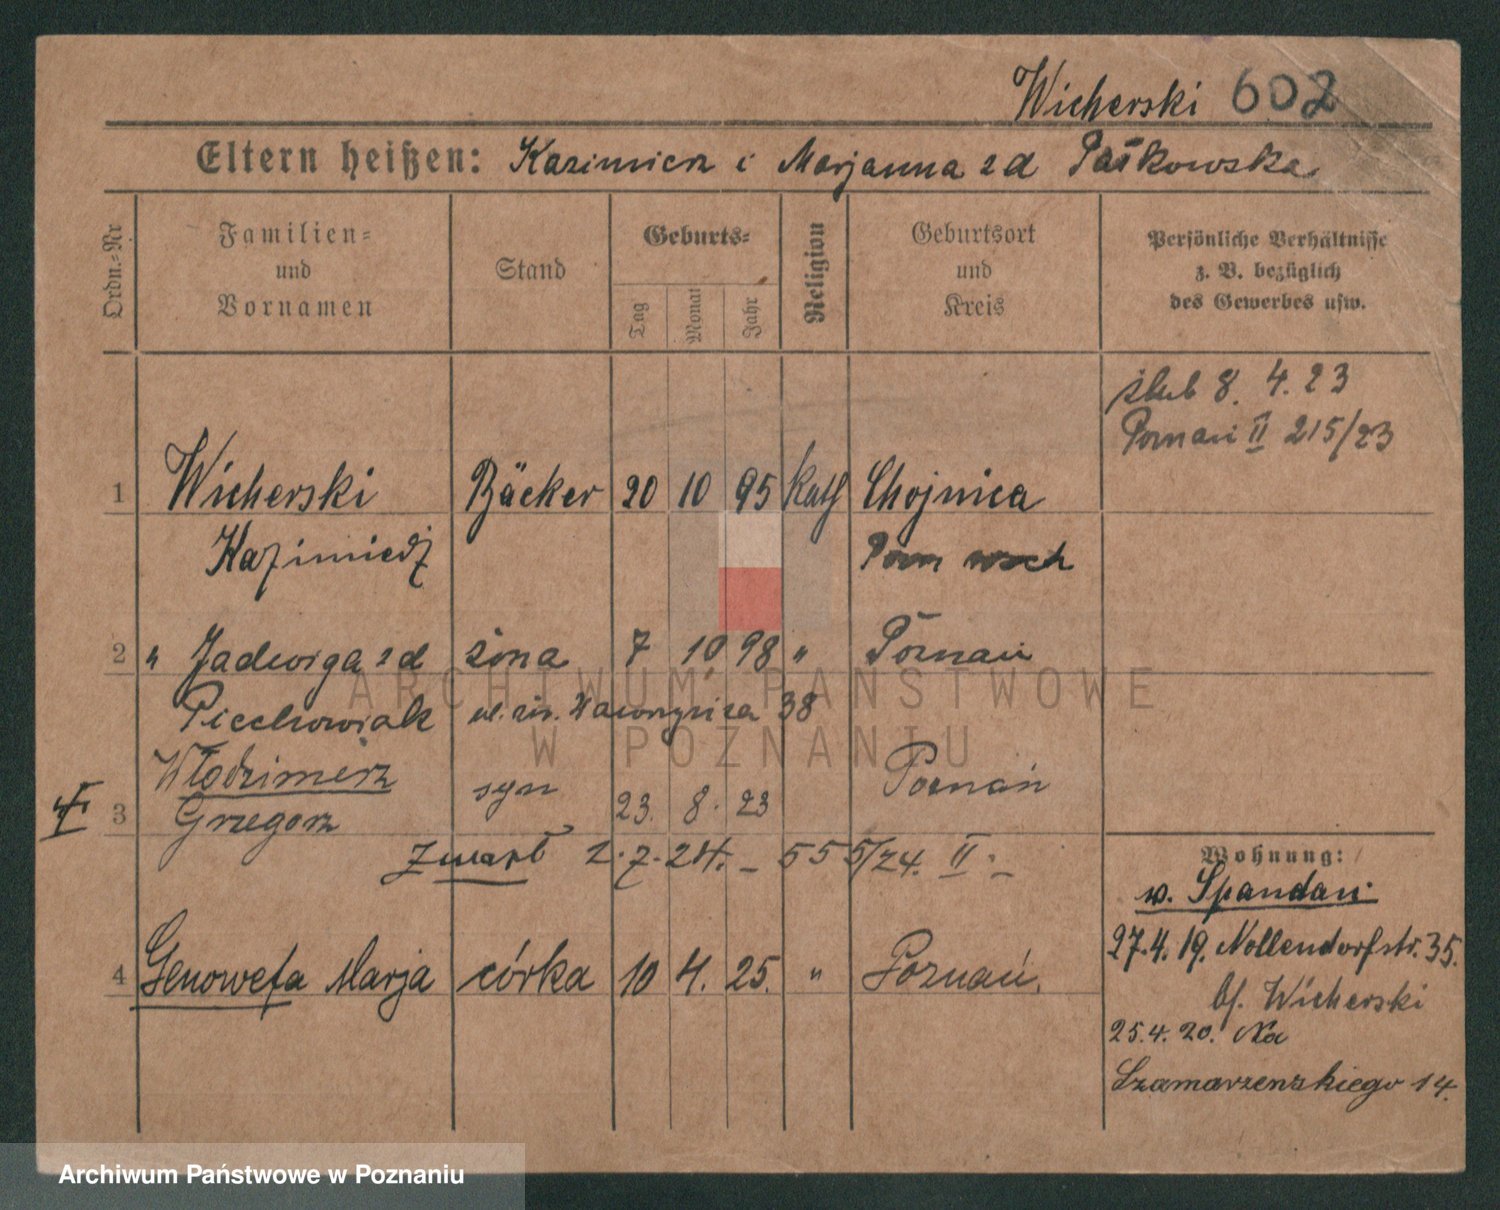 Wicherski 602
Eltern heißen: Kazimierz i Marjanna zd Patkowska
Ordn.-Nr
Familien-
und
Vornamen
Stand
Geburts-
Tag
Monat
Jahr
Religion
Geburtsort
und
Kreis
Persönliche Verhältnisse
z. B. bezüglich
des Gewerbes usw.
ślub 8. 4. 23
Poznań II 215/23
1 Wicherski Bäcker 20 10 95 kath Chojnica
Kazimierz Pozn wsch
2 " Jadwiga zd żona 7 10 98 " Poznań
Piechowiak ur. 38
Włodzimierz syn Poznań
3 Grzegorz 23. 8. 23
Zmarł 2. 7. 24. – 555/24. II. –
Wohnung:
v. Spandau.
27.4.19. Nollendorfstr. 35.
4 Genowefa Marja córka 10 4. 25. " Poznań.
bf. Wicherski
25.4.20. Na
Szamarzenskiego 14.
ARCHIWUM PAŃSTWOWE
W POZNANIU
Archiwum Państwowe w Poznaniu